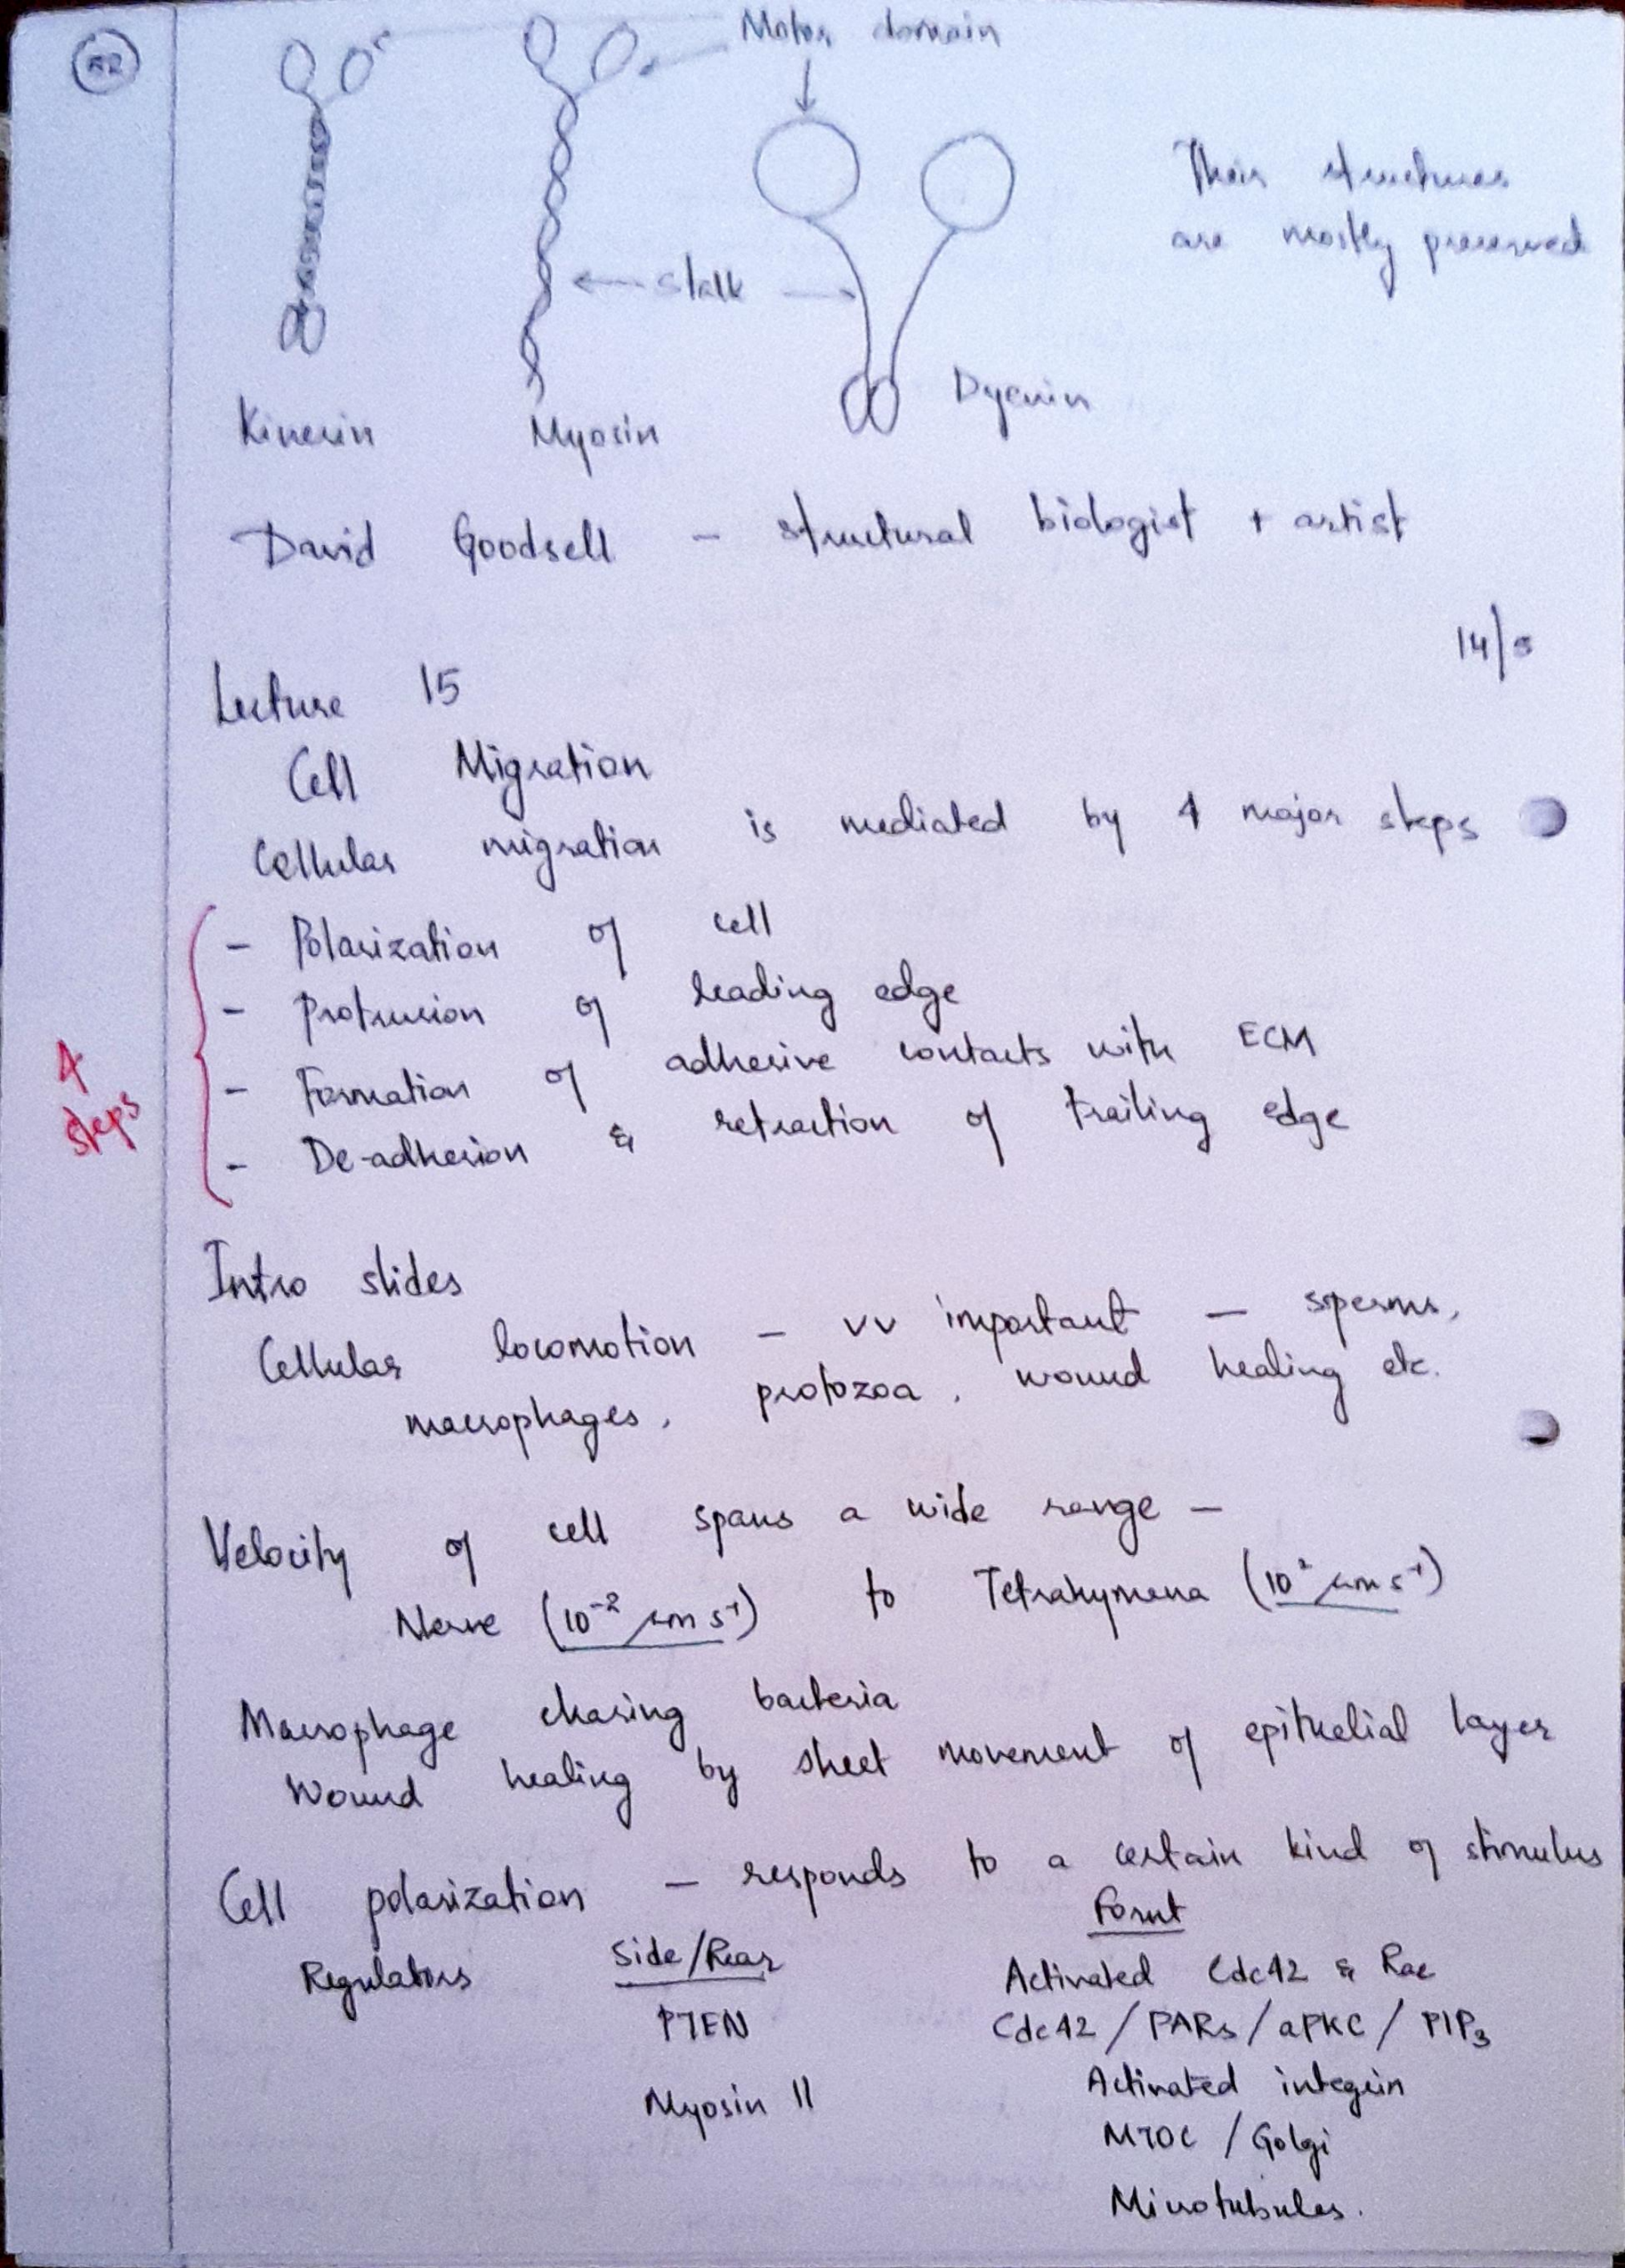 Motor domain
Their structures
are mostly preserved
Stalk
Kinesin
Myosin
Dyenin
David Goodsell - structural biologist + artist
14/5
Lecture 15
Cell Migration
Cellular migration is mediated by 4 major steps
4
steps
- Polarization of cell
- Protrusion of leading edge
- Formation of adhesive contacts with ECM
- De-adhesion & retraction of trailing edge
Intro slides
Cellular locomotion - vv important - sperms,
macrophages, protozoa, wound healing etc.
Velocity of cell spans a wide range -
Nerve (10⁻² μm s⁻¹) to Tetrahymena (10² μm s⁻¹)
Macrophage chasing bacteria
Wound healing by sheet movement of epithelial layer
Cell polarization - responds to a certain kind of stimulus
Regulators Side/Rear Fornt
Activated Cdc42 & Rac
PTEN Cdc42 / PARs / aPKC / PIP₃
Myosin II Activated integrin
MTOC / Golgi
Microtubules.